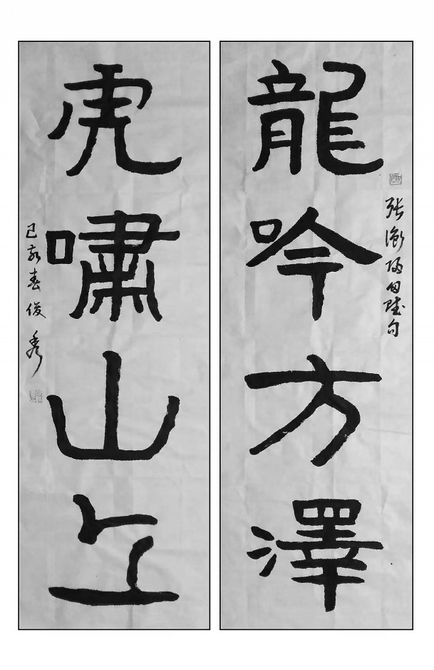 張衡歸田賦句
龍吟方澤
虎嘯山丘
己亥春俊秀